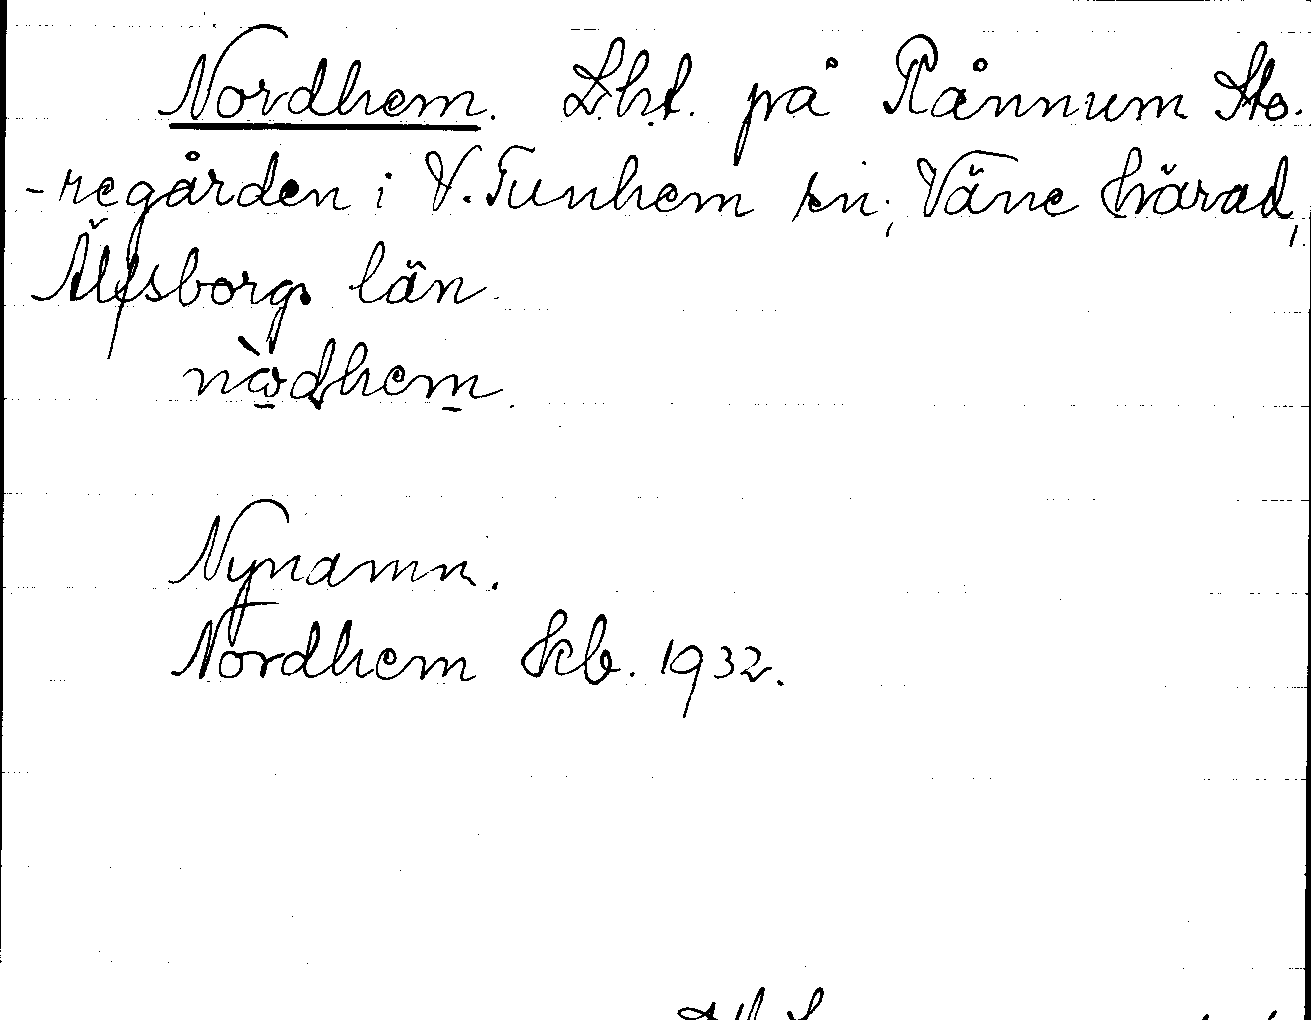 Nordhem. Lht. på Rånnum Sto-
-regården i V. Tunhem sn, Väne härad,
Älfsborgs län.
nòdhem.
Nynamn.
Nordhem Kb. 1932.